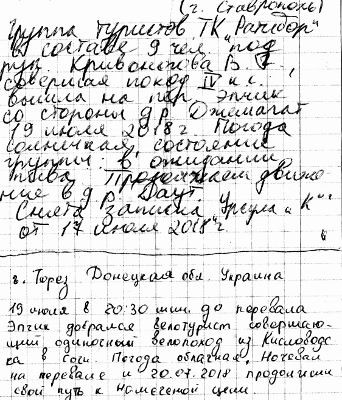 (г. Ставрополь)
группа туристов ТК „Рапбор"
в составе 9 чел. под
рук. Кривоногова В.
совершая поход IV к.с.,
вышла на пер. Эпчик
со стороны д.р. Джемагат
19 июля 2018 г. Погода
солнечная, состояние
группы: в ожидании
пива. Продолжаем движе-
ние в д.р. Даут.
Снята записка Урсула „К"
от 17 июля 2018 г.
г. Торез Донецкая обл. Украина
19 июля в 20:30 мин. до перевала
Эпчик добрался велотурист совершаю-
щий одиночный велопоход из Кисловодс
ка в Сочи. Погода облачная. Ночевал
на перевале и 20.07.2018 продолжил
свой путь к намеченой цели.